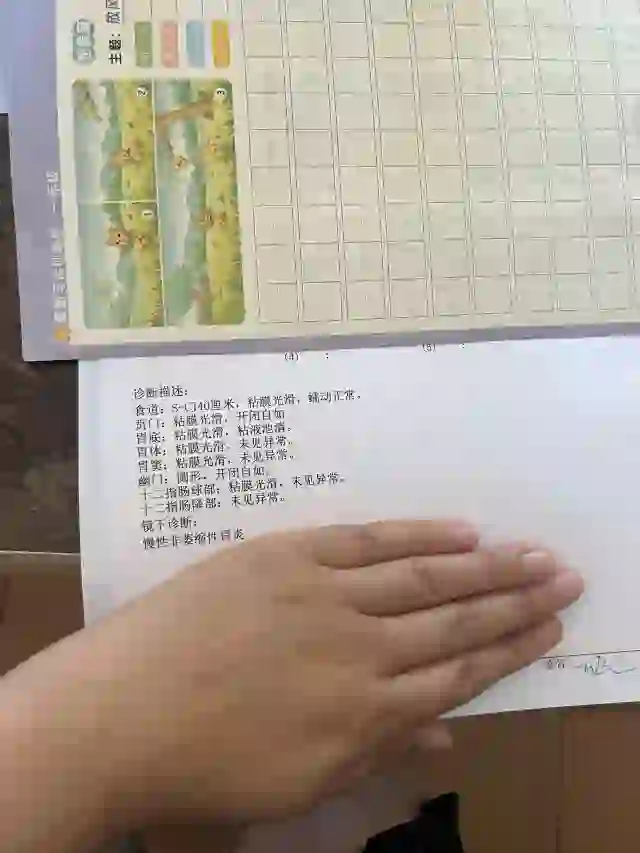 主题：放风
2
3
1
(4) :
(5) :
诊断描述：
食道：S-门40厘米，粘膜光滑，蠕动正常。
贲门：粘膜光滑，开闭自如
胃底：粘膜光滑，粘液池清。
胃体：粘膜光滑，未见异常。
胃窦：粘膜光滑，未见异常。
幽门：圆形，开闭自如。
十二指肠球部：粘膜光滑，未见异常。
十二指肠降部：未见异常。
镜下诊断：
慢性非萎缩性胃炎